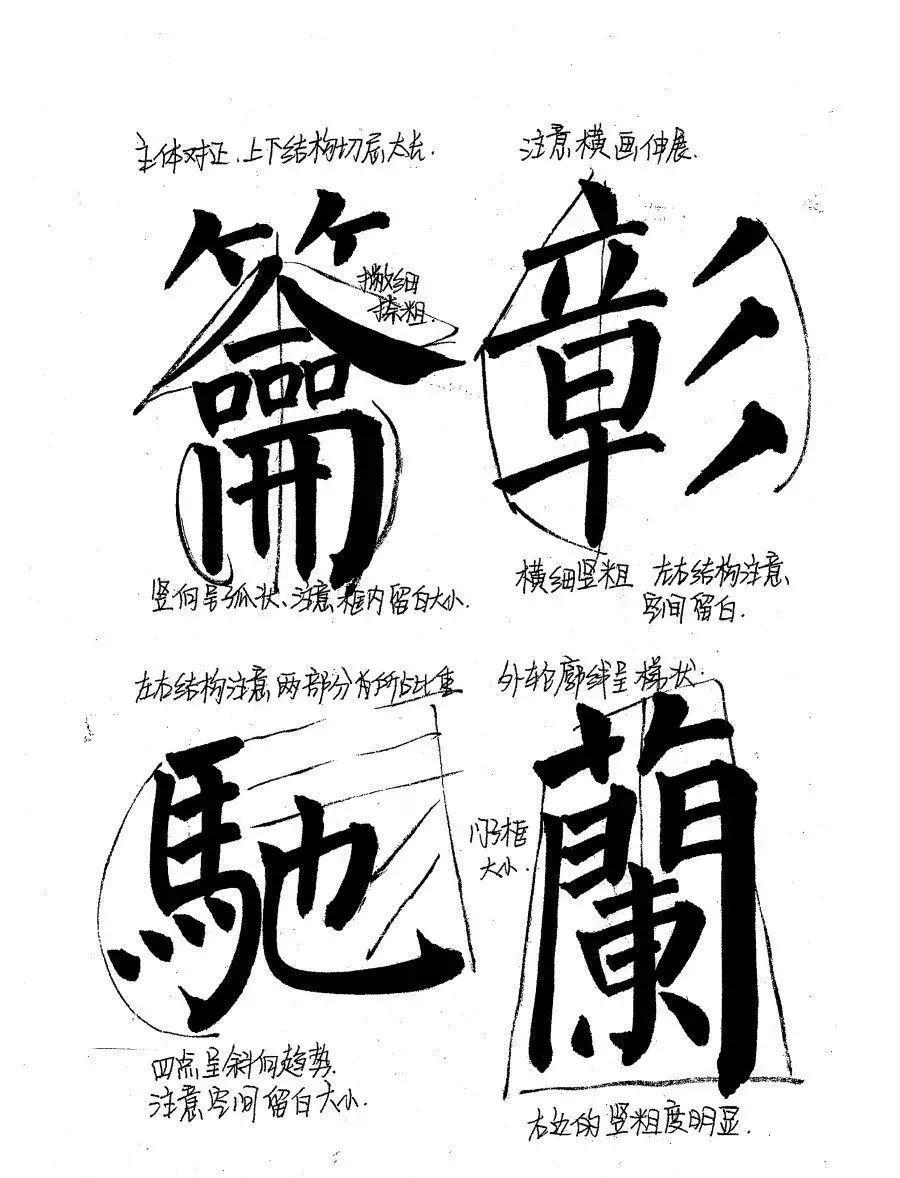 主体对正、上下结构切忌太长.
注意横画伸展.
籥
撇细
捺粗.
彰
竖向呈弧状、注意框内留白大小.
横细竖粗 左右结构注意
空间留白.
左右结构注意两部分有所占比重
外轮廓线呈梯状.
馳
门字框
大小.
蘭
四点呈斜向趋势.
注意空间留白大小.
右边的竖粗度明显.